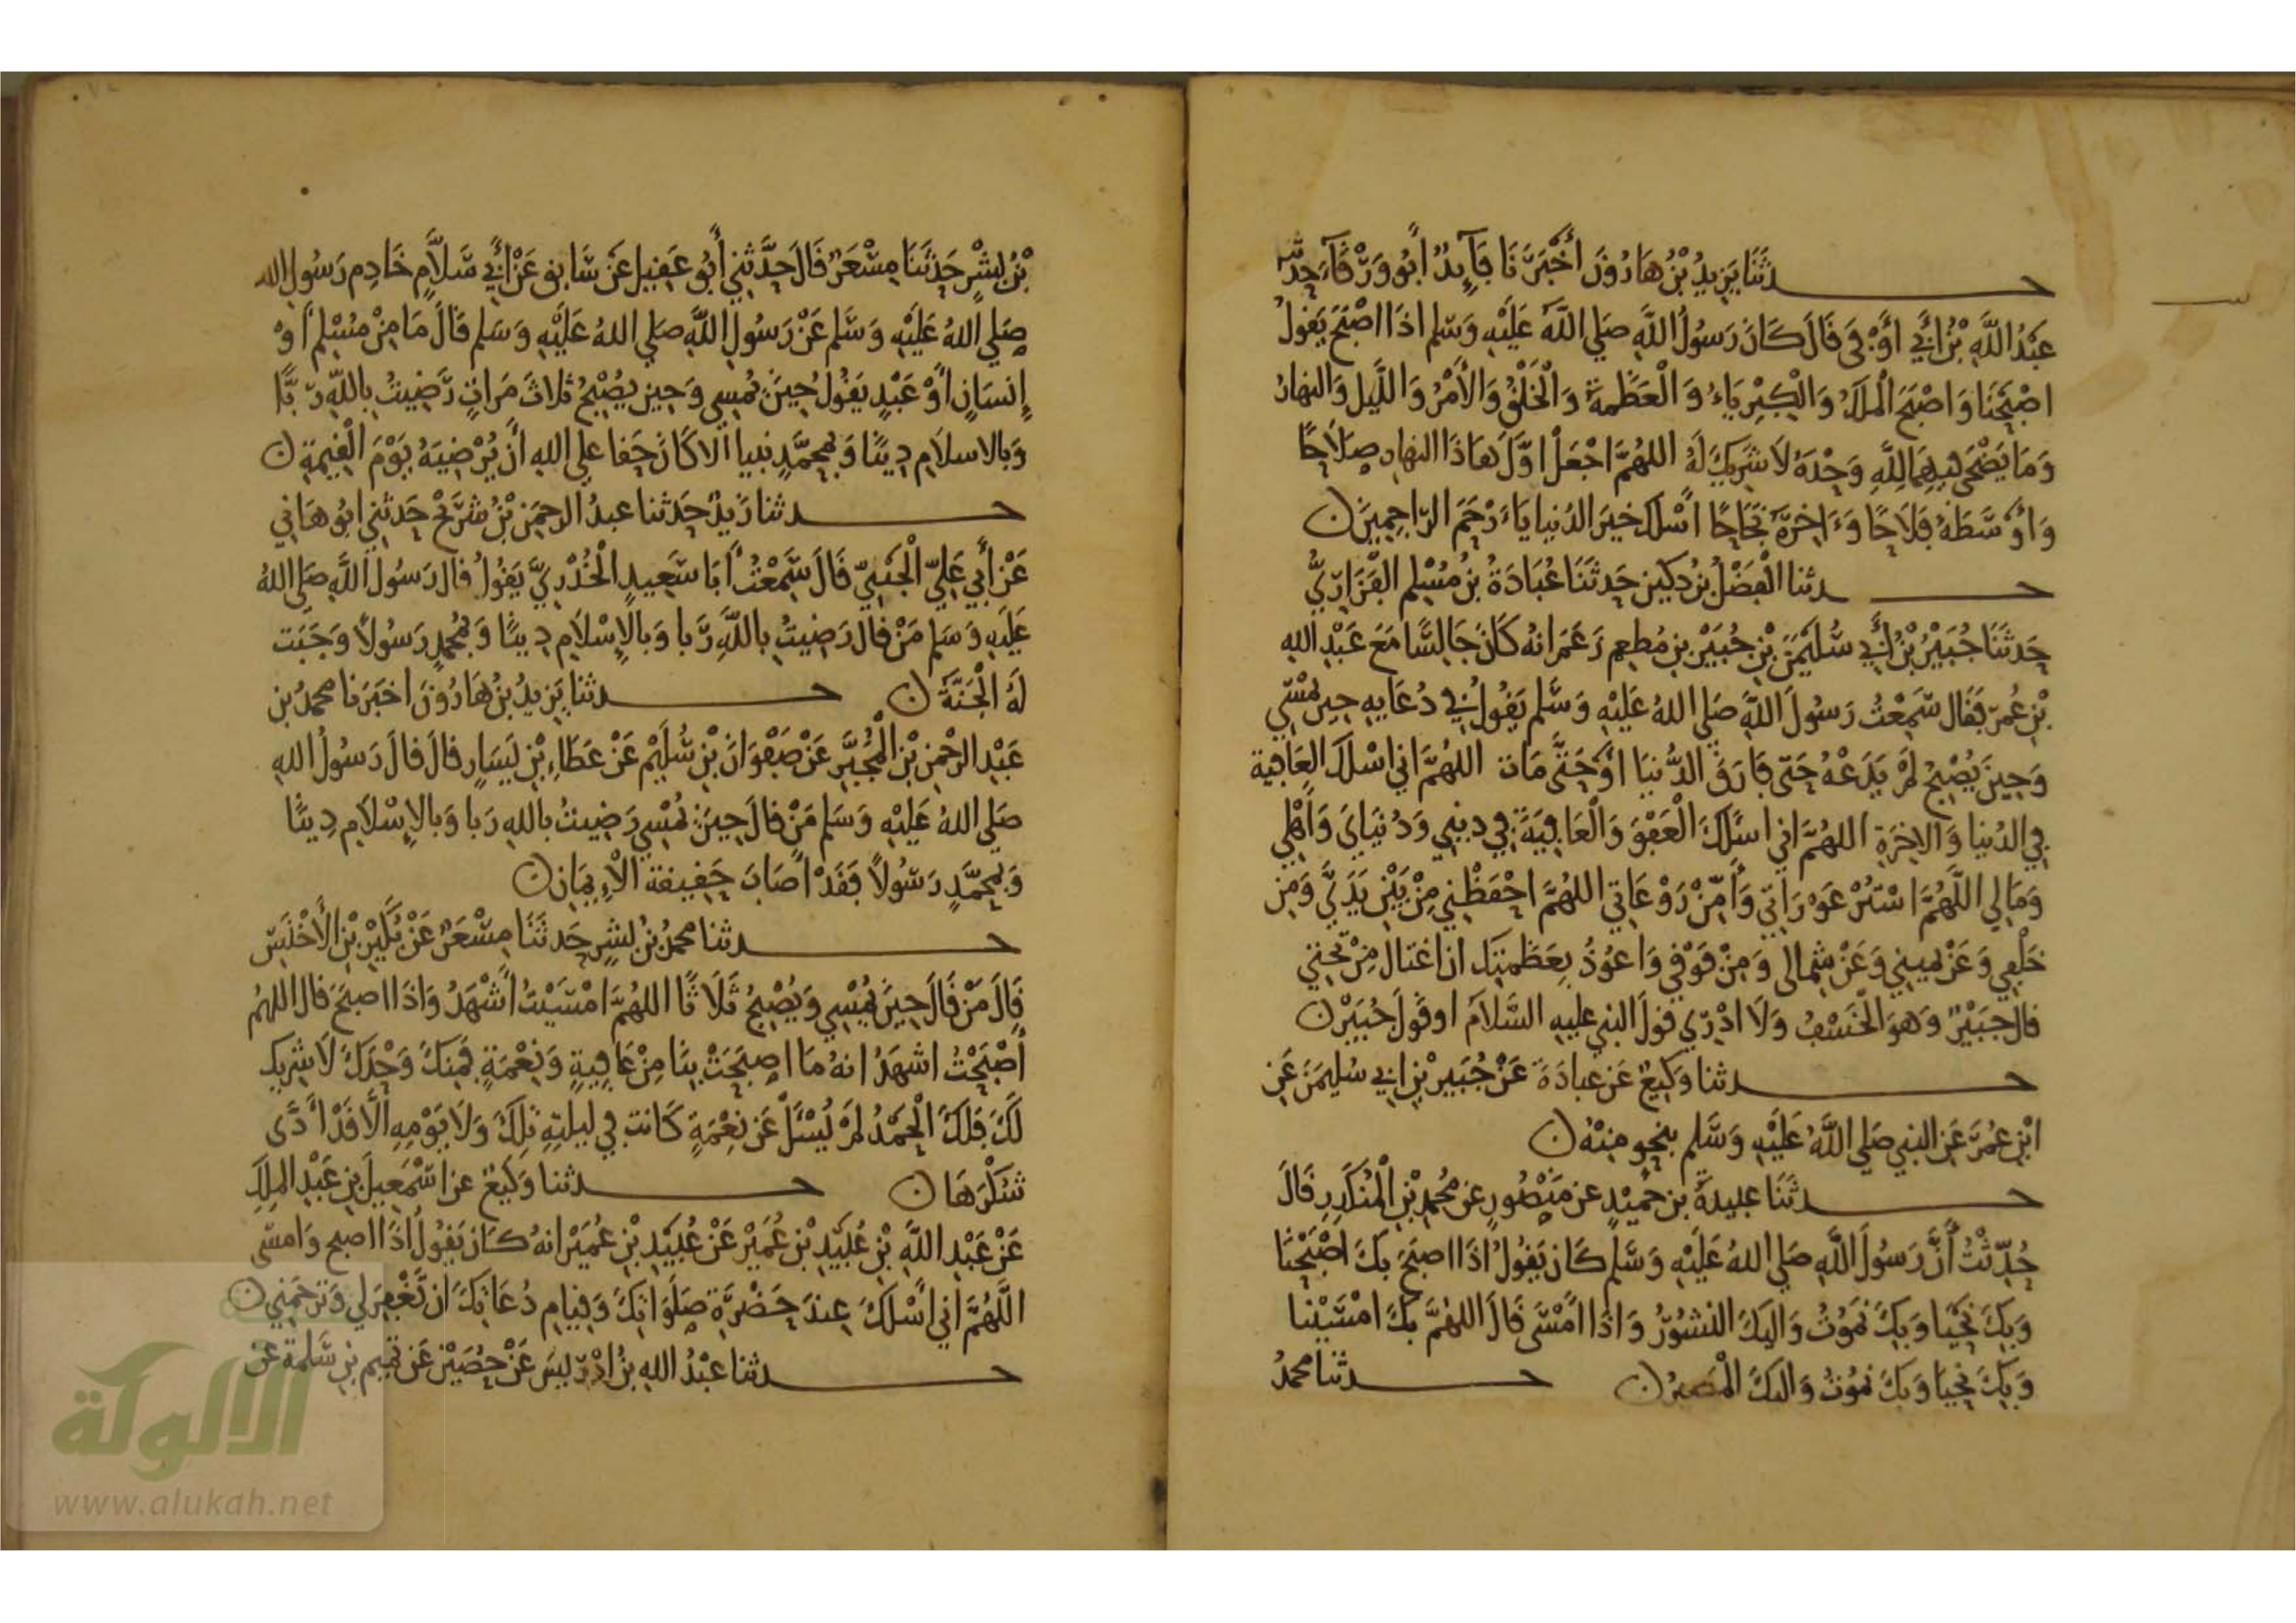 حدثنا يزيد بن هارون أخبرنا فايد أبو ورقاء حدثنا
عبد الله بن أبي أوفى قال كان رسول الله صلى الله عليه وسلم اذا اصبح يقول
اصبحنا واصبح الملك والكبرياء والعظمة والخلق والأمر والليل والنهار
وما يضحى فيهما لله وحده لا شريك له اللهم اجعل اول هاذا النهار صلاحا
وأوسطه فلاحا وءاخره نجاحا أسلك خير الدنيا ياءرحم الراحمين
حدثنا الفضل بن دكين حدثنا عبادة بن مسلم الفزاري
حدثنا جبير بن أبي سليمن بن جبير بن مطعم زعم انه كان جالسا مع عبد الله
بن عمر فقال سمعت رسول الله صلى الله عليه وسلم يقول في دعايه حين يمسي
وحين يصبح لم يدعه حتى فارق الدنيا أو حتى مات اللهم اني اسلك العافية
في الدنيا والاخرة اللهم اني اسئلك العفو والعافية في ديني ودنياي وأهلي
ومالي اللهم استر عوراتي وأمن روعاتي اللهم احفظني من بين يدي ومن
خلفي وعن يميني وعن شمالى ومن فوقي واعوذ بعظمتك ان اغتال من تحتي
قال جبير وهو الخسف ولا ادري قول النبي عليه السلام او قول جبير
حدثنا وكيع عن عبادة عن جبير بن ابي سليمن عن
ابن عمر عن النبي صلى الله عليه وسلم بنحو منه
حدثنا عبيدة بن حميد عن منصور عن محمد بن المنكدر قال
حدثت أن رسول الله صلى الله عليه وسلم كان يقول اذا اصبح بك اصبحنا
وبك نحيا وبك نموت واليك النشور واذا أمسى قال اللهم بك امسينا
وبك نحيا وبك نموت واليك المصير حدثنا محمد
بن بشر حدثنا مسعر قال حدثني أبو عقيل عن سابق عن أبي سلام خادم رسول الله
صلى الله عليه وسلم عن رسول الله صلى الله عليه وسلم قال ما من مسلم أو
إنسان أو عبد يقول حين يمسي وحين يصبح ثلاث مرات رضيت بالله ربا
وبالاسلام دينا وبمحمد نبيا الا كان حقا على الله أن يرضيه يوم القيمة
حدثنا زيد حدثنا عبد الرحمن بن شريح حدثني ابو هاني
عن أبي علي الجنبي قال سمعت أبا سعيد الخدري يقول قال رسول الله صلى الله
عليه وسلم من قال رضيت بالله ربا وبالإسلام دينا وبمحمد رسولا وجبت
له الجنة حدثنا يزيد بن هارون اخبرنا محمد بن
عبد الرحمن بن المجبر عن صفوان بن سليم عن عطاء بن يسار قال قال رسول الله
صلى الله عليه وسلم من قال حين يمسي رضيت بالله ربا وبالإسلام دينا
وبمحمد رسولا فقد أصاب حقيقة الإيمان
حدثنا محمد بن بشر حدثنا مسعر عن بكير بن الأخنس
قال من قال حين يمسي ويصبح ثلاثا اللهم امسيت أشهد واذا اصبح قال اللهم
أصبحت اشهد انه ما اصبحت بنا من عافية ونعمة فمنك وحدك لا شريك
لك فلك الحمد لم يسئل عن نعمة كانت في ليلته تلك ولا يومه ألا قد أدى
شكرها حدثنا وكيع عن اسمعيل بن عبد الملك
عن عبد الله بن عبيد بن عمير عن عبيد بن عمير انه كان يقول اذا اصبح وامسى
اللهم اني أسلك عند حضرة صلواتك وقيام دعاتك ان تغفر لي وترحمني
حدثنا عبد الله بن ادريس عن حصين عن تميم بن سلمة عن
الألوكة
www.alukah.net